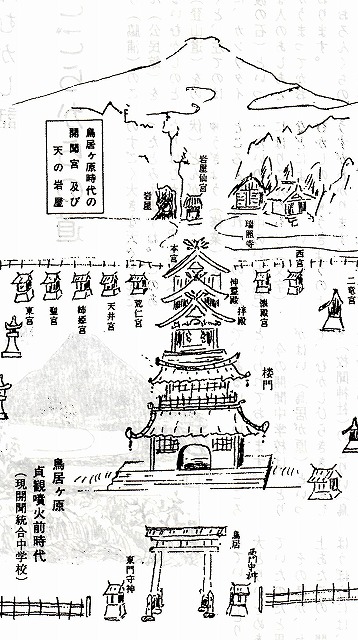 鳥居ヶ原時代の
開聞宮及び
天の岩屋
岩屋仙宮
岩屋
瑞應寺
本宮
西宮
二竜宮
神霊殿
拝殿
荒仁宮
天井宮
姉姫宮
聖宮
東宮
楼門
鳥居ヶ原
貞観噴火前時代
(現開聞統合中学校)
鳥居
東門守神
西門守神